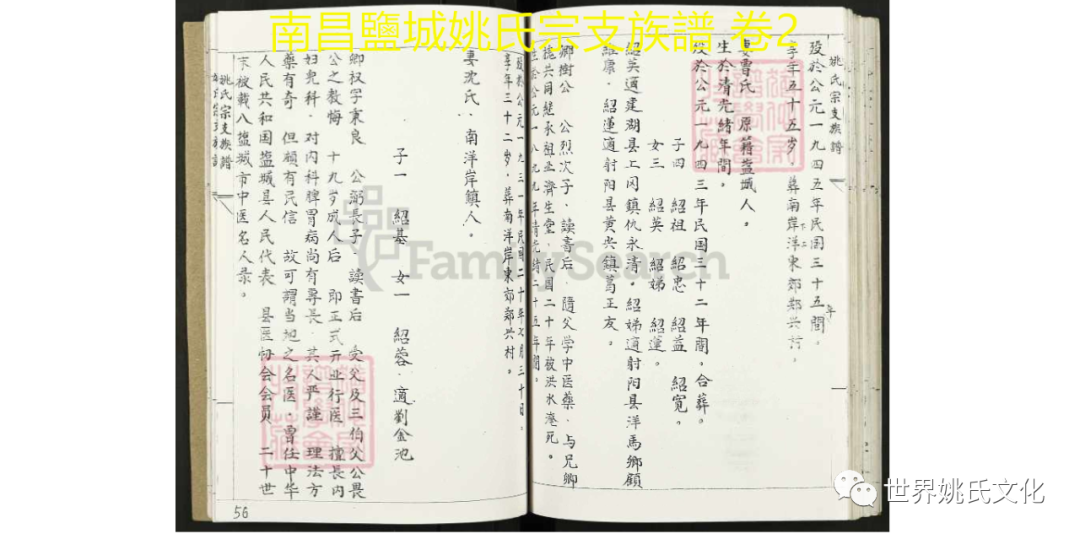 南昌鹽城姚氏宗支族譜 卷2
姚氏宗支族譜
殁於公元一九四五年民国三十五年閏。
享年五十五岁，葬南岸洋東郊郑兴村。
妻曹氏，原籍盐城人。
生於清光緒年間。
殁於公元一九四三年民国三十二年閏，合葬。
子四 紹祖 紹忠 紹益 紹寬。
女三 紹英 紹娣 紹蓮。
紹英適建湖县上冈鎮仇永清。紹娣適射阳县洋馬鄉顧
紹蓮適射阳县黄尖镇葛正友。
卿樹公 公烈次子，讀書后，隨父学中医藥，与兄卿
共同继承祖业濟生堂，民国二十年被洪水淹死。
生於公元一八九九年清光緒二十五年閏。
殁於公元一九三一年民国二十年七月三十日。
享年三十二岁，葬南洋岸東郊郑兴村。
妻沈氏，南洋岸鎮人。
子一 紹基 女一 紹蓉，適劉金池
卿权字秉良 公弼長子，讀書后 受父及三伯父公畏
公之教悔 十九岁成人后 即正式开业行医 擅長内
妇兒科，对内科脾胃病尚有專長，其人严謹 理法方
藥有奇 但頗有民信 故可謂当地之名医，曾任中华
人民共和国盐城县人民代表 县医协会会員 二十世
末被載入盐城市中医名人录。
姚氏宗支族譜
56
FamilySearch
世界姚氏文化